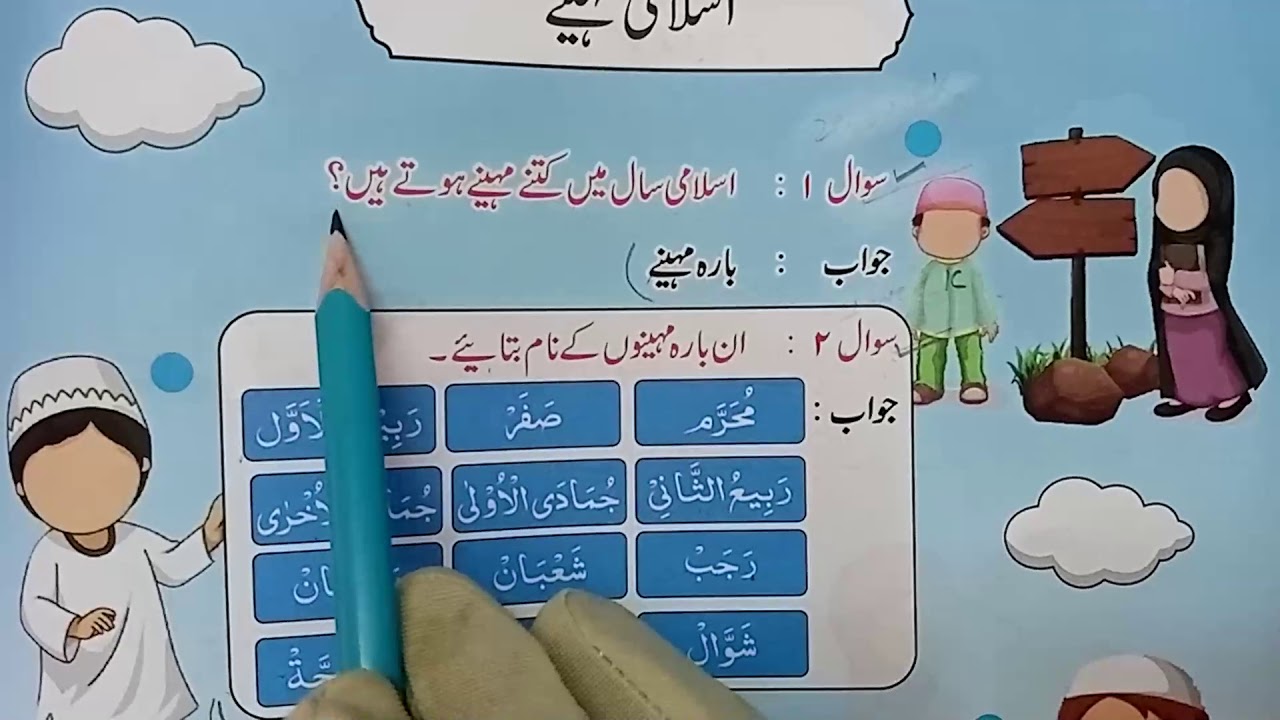 اسلامی مہینے
سوال ۱ : اسلامی سال میں کتنے مہینے ہوتے ہیں؟
جواب : بارہ مہینے
سوال ۲ : ان بارہ مہینوں کے نام بتائیے۔
جواب :
مُحَرَّم صَفَرْ
رَبِیْعُ الثَّانِیْ جُمَادَی الْاُوْلٰی
رَجَبْ شَعْبَانْ
شَوَّالْ